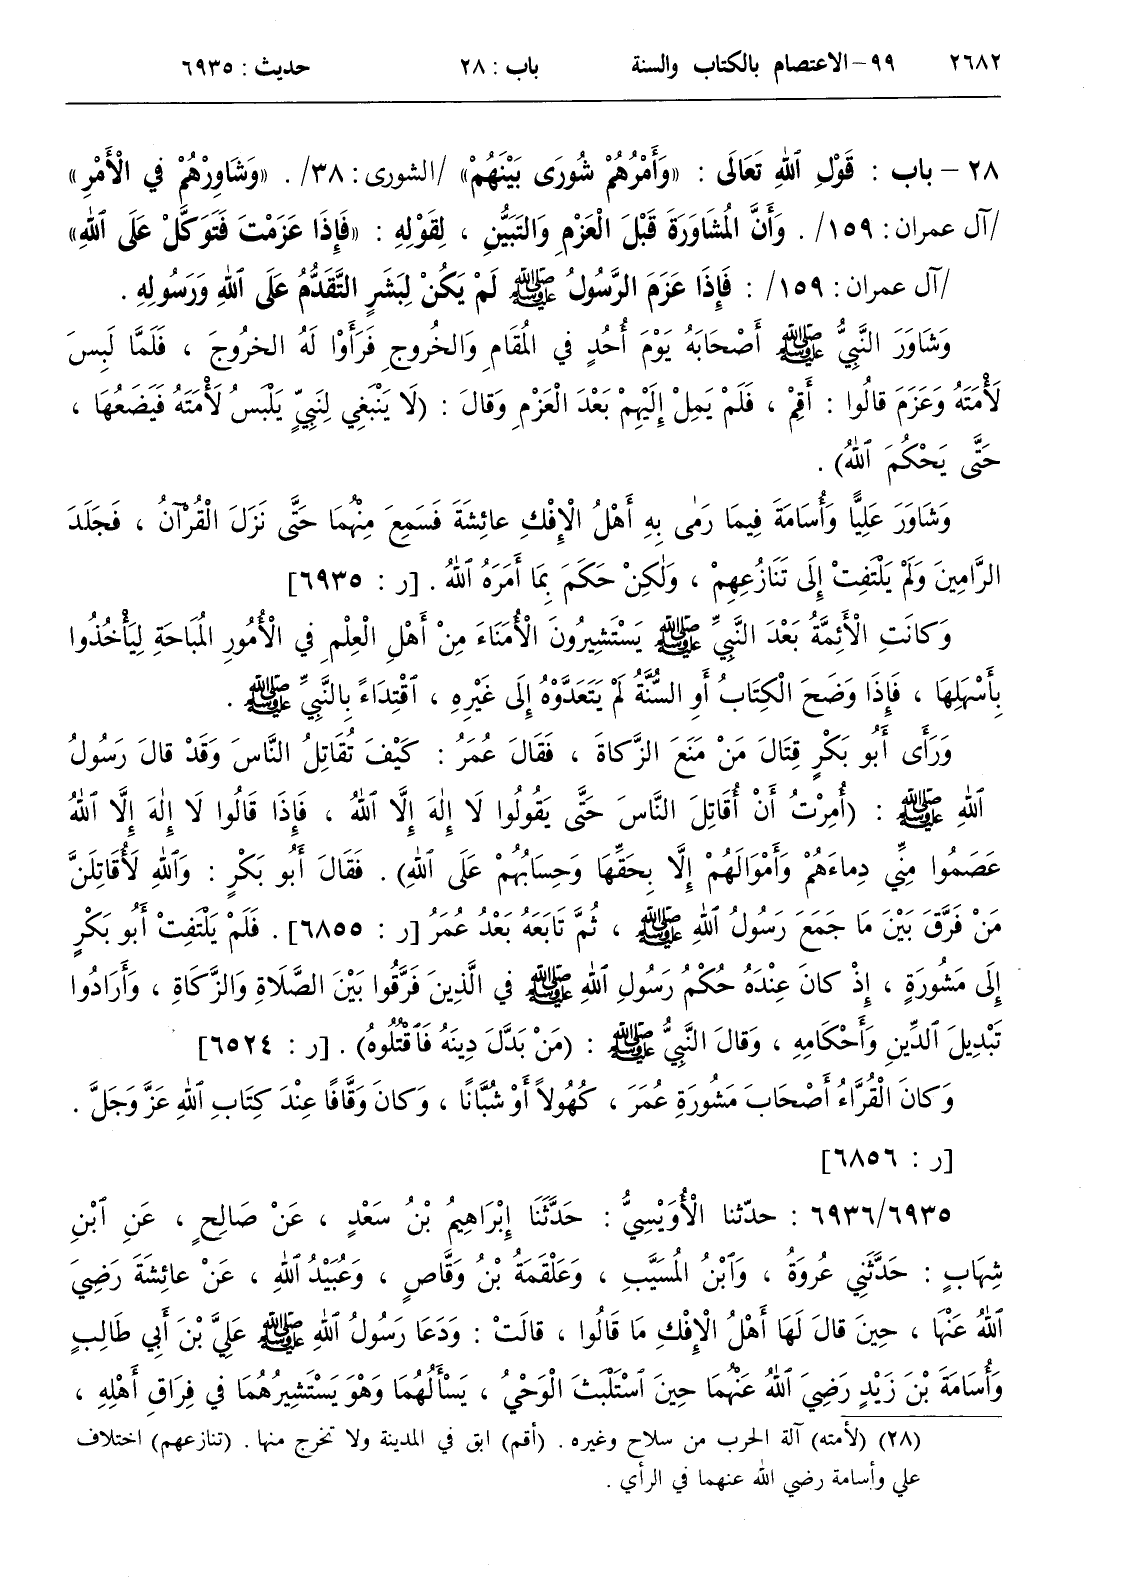 ٢٦٨٢ ٩٩- الاعتصام بالكتاب والسنة باب : ٢٨ حديث : ٦٩٣٥
٢٨ - باب : قَوْلِ ٱللهِ تَعَالَى : «وَأَمْرُهُمْ شُورَى بَيْنَهُمْ» /الشورى: ٣٨/ . «وَشَاوِرْهُمْ فِي الْأَمْرِ»
/آل عمران: ١٥٩/ . وَأَنَّ المُشَاوَرَةَ قَبْلَ الْعَزْمِ وَالتَّبَيُّنِ ، لِقَوْلِهِ : «فَإِذَا عَزَمْتَ فَتَوَكَّلْ عَلَى ٱللهِ»
/آل عمران: ١٥٩/ : فَإِذَا عَزَمَ الرَّسُولُ ﷺ لَمْ يَكُنْ لِبَشَرٍ التَّقَدُّمُ عَلَى ٱللهِ وَرَسُولِهِ .
وَشَاوَرَ النَّبِيُّ ﷺ أَصْحَابَهُ يَوْمَ أُحُدٍ فِي المُقَامِ وَالخُرُوجِ فَرَأَوْا لَهُ الخُرُوجَ ، فَلَمَّا لَبِسَ
لَأْمَتَهُ وَعَزَمَ قالُوا : أَقِمْ ، فَلَمْ يَمِلْ إِلَيْهِمْ بَعْدَ الْعَزْمِ وَقالَ : (لَا يَنْبَغِي لِنَبِيٍّ يَلْبَسُ لَأْمَتَهُ فَيَضَعُهَا ،
حَتَّى يَحْكُمَ ٱللهُ) .
وَشَاوَرَ عَلِيًّا وَأُسَامَةَ فِيمَا رَمٰى بِهِ أَهْلُ الْإِفْكِ عائِشَةَ فَسَمِعَ مِنْهُمَا حَتَّى نَزَلَ الْقُرْآنُ ، فَجَلَدَ
الرَّامِينَ وَلَمْ يَلْتَفِتْ إِلَى تَنَازُعِهِمْ ، وَلٰكِنْ حَكَمَ بِمَا أَمَرَهُ ٱللهُ . [ر : ٦٩٣٥]
وَكانَتِ الْأَئِمَّةُ بَعْدَ النَّبِيِّ ﷺ يَسْتَشِيرُونَ الْأُمَنَاءَ مِنْ أَهْلِ الْعِلْمِ فِي الْأُمُورِ المُبَاحَةِ لِيَأْخُذُوا
بِأَسْهَلِهَا ، فَإِذَا وَضَحَ الْكِتَابُ أَوِ السُّنَّةُ لَمْ يَتَعَدَّوْهُ إِلَى غَيْرِهِ ، ٱقْتِدَاءً بِالنَّبِيِّ ﷺ .
وَرَأَى أَبُو بَكْرٍ قِتَالَ مَنْ مَنَعَ الزَّكاةَ ، فَقَالَ عُمَرُ : كَيْفَ تُقَاتِلُ النَّاسَ وَقَدْ قالَ رَسُولُ
ٱللهِ ﷺ : (أُمِرْتُ أَنْ أُقَاتِلَ النَّاسَ حَتَّى يَقُولُوا لَا إِلٰهَ إِلَّا ٱللهُ ، فَإِذَا قَالُوا لَا إِلٰهَ إِلَّا ٱللهُ
عَصَمُوا مِنِّي دِماءَهُمْ وَأَمْوَالَهُمْ إِلَّا بِحَقِّهَا وَحِسَابُهُمْ عَلَى ٱللهِ) . فَقَالَ أَبُو بَكْرٍ : وَٱللهِ لَأُقَاتِلَنَّ
مَنْ فَرَّقَ بَيْنَ مَا جَمَعَ رَسُولُ ٱللهِ ﷺ ، ثُمَّ تَابَعَهُ بَعْدُ عُمَرُ [ر : ٦٨٥٥] . فَلَمْ يَلْتَفِتْ أَبُو بَكْرٍ
إِلَى مَشُورَةٍ ، إِذْ كانَ عِنْدَهُ حُكْمُ رَسُولِ ٱللهِ ﷺ فِي الَّذِينَ فَرَّقُوا بَيْنَ الصَّلَاةِ وَالزَّكَاةِ ، وَأَرَادُوا
تَبْدِيلَ ٱلدِّينِ وَأَحْكامِهِ ، وَقالَ النَّبِيُّ ﷺ : (مَنْ بَدَّلَ دِينَهُ فَٱقْتُلُوهُ) . [ر : ٦٥٢٤]
وَكانَ الْقُرَّاءُ أَصْحَابَ مَشُورَةِ عُمَرَ ، كُهُولاً أَوْ شُبَّانًا ، وَكانَ وَقَّافًا عِنْدَ كِتَابِ ٱللهِ عَزَّ وَجَلَّ .
[ر : ٦٨٥٦]
٦٩٣٦/٦٩٣٥ : حدّثنا الْأُوَيْسِيُّ : حَدَّثَنَا إِبْرَاهِيمُ بْنُ سَعْدٍ ، عَنْ صَالِحٍ ، عَنِ ٱبْنِ
شِهَابٍ : حَدَّثَنِي عُرْوَةُ ، وَٱبْنُ المُسَيَّبِ ، وَعَلْقَمَةُ بْنُ وَقَّاصٍ ، وَعُبَيْدُ ٱللهِ ، عَنْ عائِشَةَ رَضِيَ
ٱللهُ عَنْهَا ، حِينَ قالَ لَهَا أَهْلُ الْإِفْكِ مَا قَالُوا ، قالَتْ : وَدَعَا رَسُولُ ٱللهِ ﷺ عَلِيَّ بْنَ أَبِي طَالِبٍ
وَأُسَامَةَ بْنَ زَيْدٍ رَضِيَ ٱللهُ عَنْهُمَا حِينَ ٱسْتَلْبَثَ الْوَحْيُ ، يَسْأَلُهُمَا وَهْوَ يَسْتَشِيرُهُمَا فِي فِرَاقِ أَهْلِهِ ،
(٢٨) (لأمته) آلة الحرب من سلاح وغيره . (أقم) ابق في المدينة ولا تخرج منها . (تنازعهم) اختلاف
علي وأسامة رضي الله عنهما في الرأي .